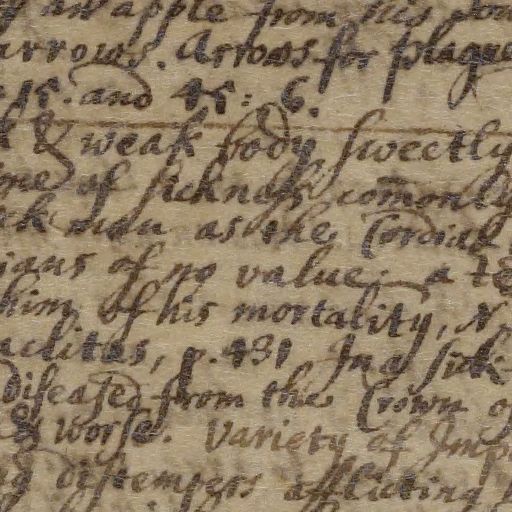 an apple from his
arrows. Arrows for plague
15. and 45: 6.
& weak body, sweetly
of sicknes, comonly
man as the Cordial
of no value; a
him of his mortality,
, p. 431 In a sick
diseased from the Crown of
& worse. Variety of Imp
distempers afflicting